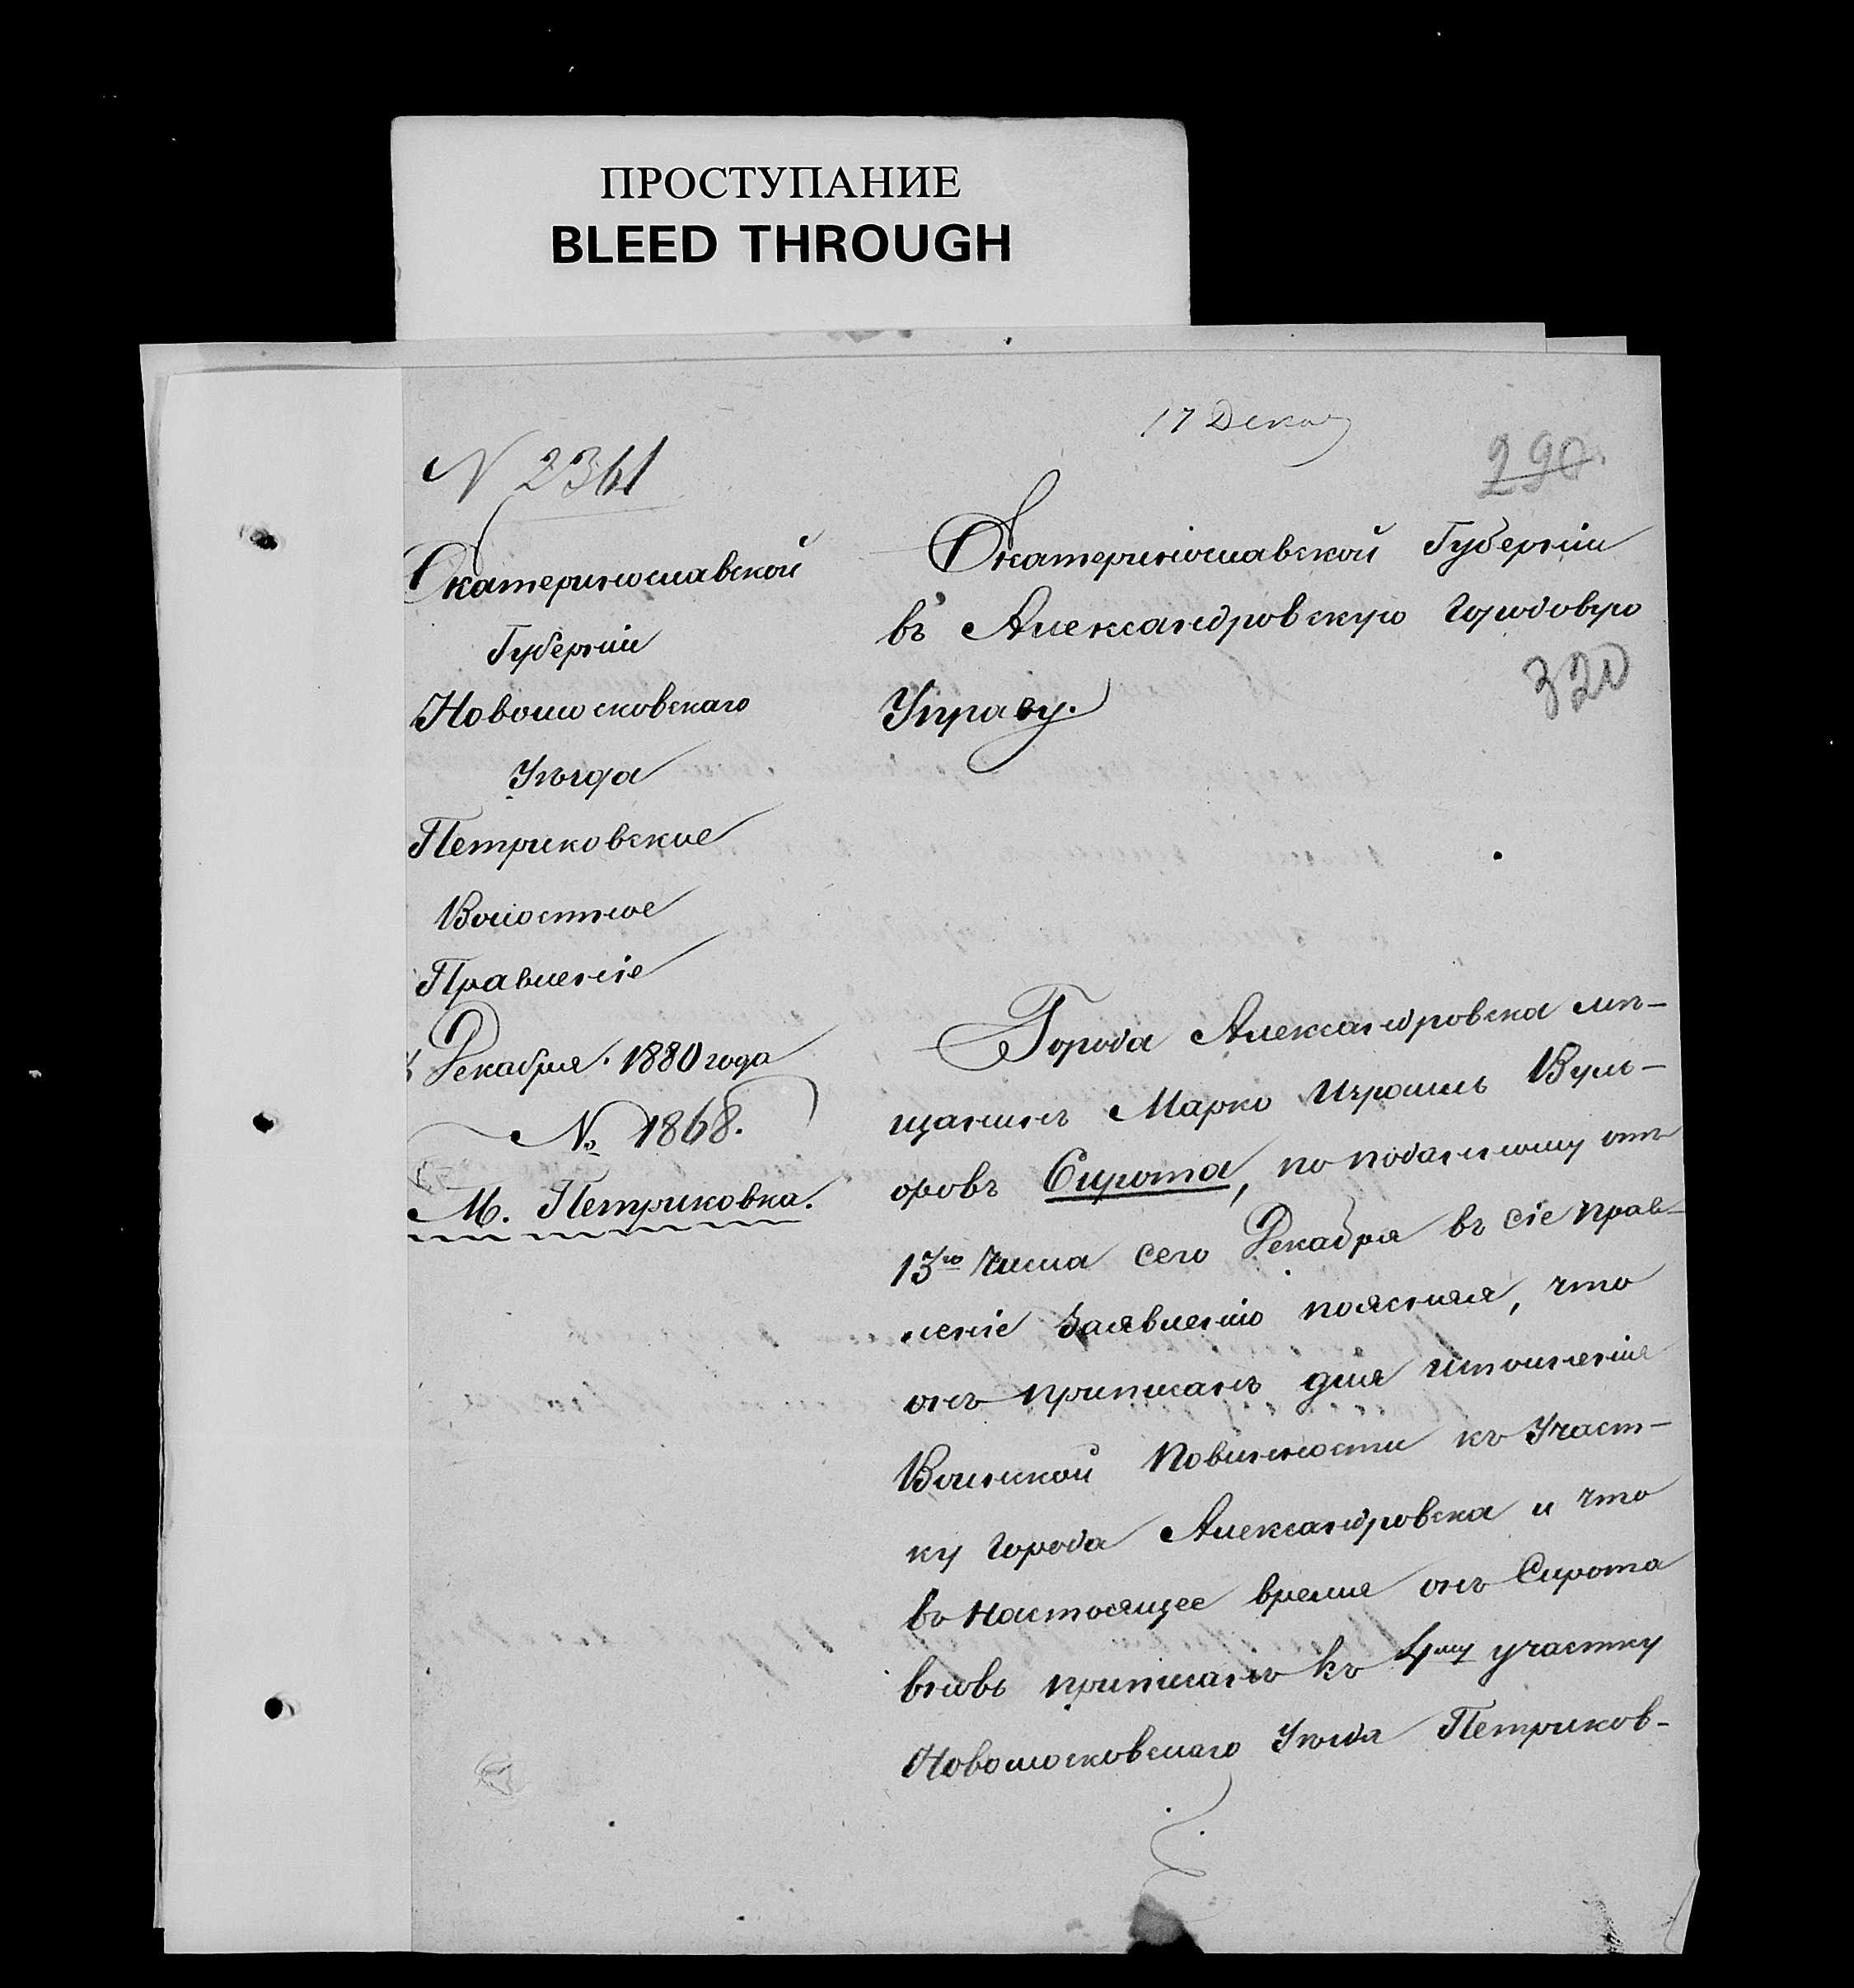 ПРОСТУПАНИЕ
BLEED THROUGH
17 Декаб
290
N 2361
Екатеринославской
Губерніи
Новомосковскаго
Уѣзда
Петриковское
Волостное
Правленіе
Декабря 1880 года
№ 1868.
М. Петриковка.
Екатеринославской Губерніи
въ Александровскую Городовую
320
Управу.
Города Александровска мѣ-
щанинъ Марко Изроиль Вуль-
фовъ Сирота, по поданному отъ
13го Числа сего Декабря въ сіе Прав-
леніе Заявленію поясняя, что
онъ приписанъ для исполненія
Воинской Повинности къ Участ-
ку Города Александровска и что
въ настоящее время онъ Сирота
вновь приписанъ къ 4му участку
Новомосковскаго Уѣзда Петриков-